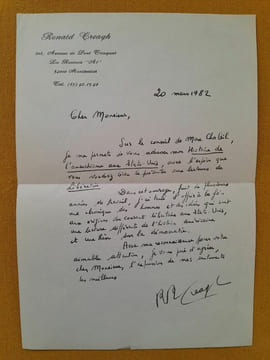 Ronald Creagh
Les Rosiers "A1"
34000 Montpellier
20 mars 1982
Cher Monsieur,
Sur le conseil de Mme Chateil,
je me permets de vous adresser mon Histoire de
l'anarchisme aux États-Unis, avec l'espoir que
vous voudrez bien le présenter aux lecteurs de
Libération.
Dans cet ouvrage, fruit de plusieurs
années de travail, j'ai
chronique des hommes et des idées qui ont
aux origines du courant libertaire aux États-Unis,
une lecture différente de l'histoire américaine
et une sur la démocratie.
Avec ma reconnaissance pour votre
aimable attention, je vous prie d'agréer,
cher Monsieur, l'expression de mes sentiments
les meilleurs
R Creagh